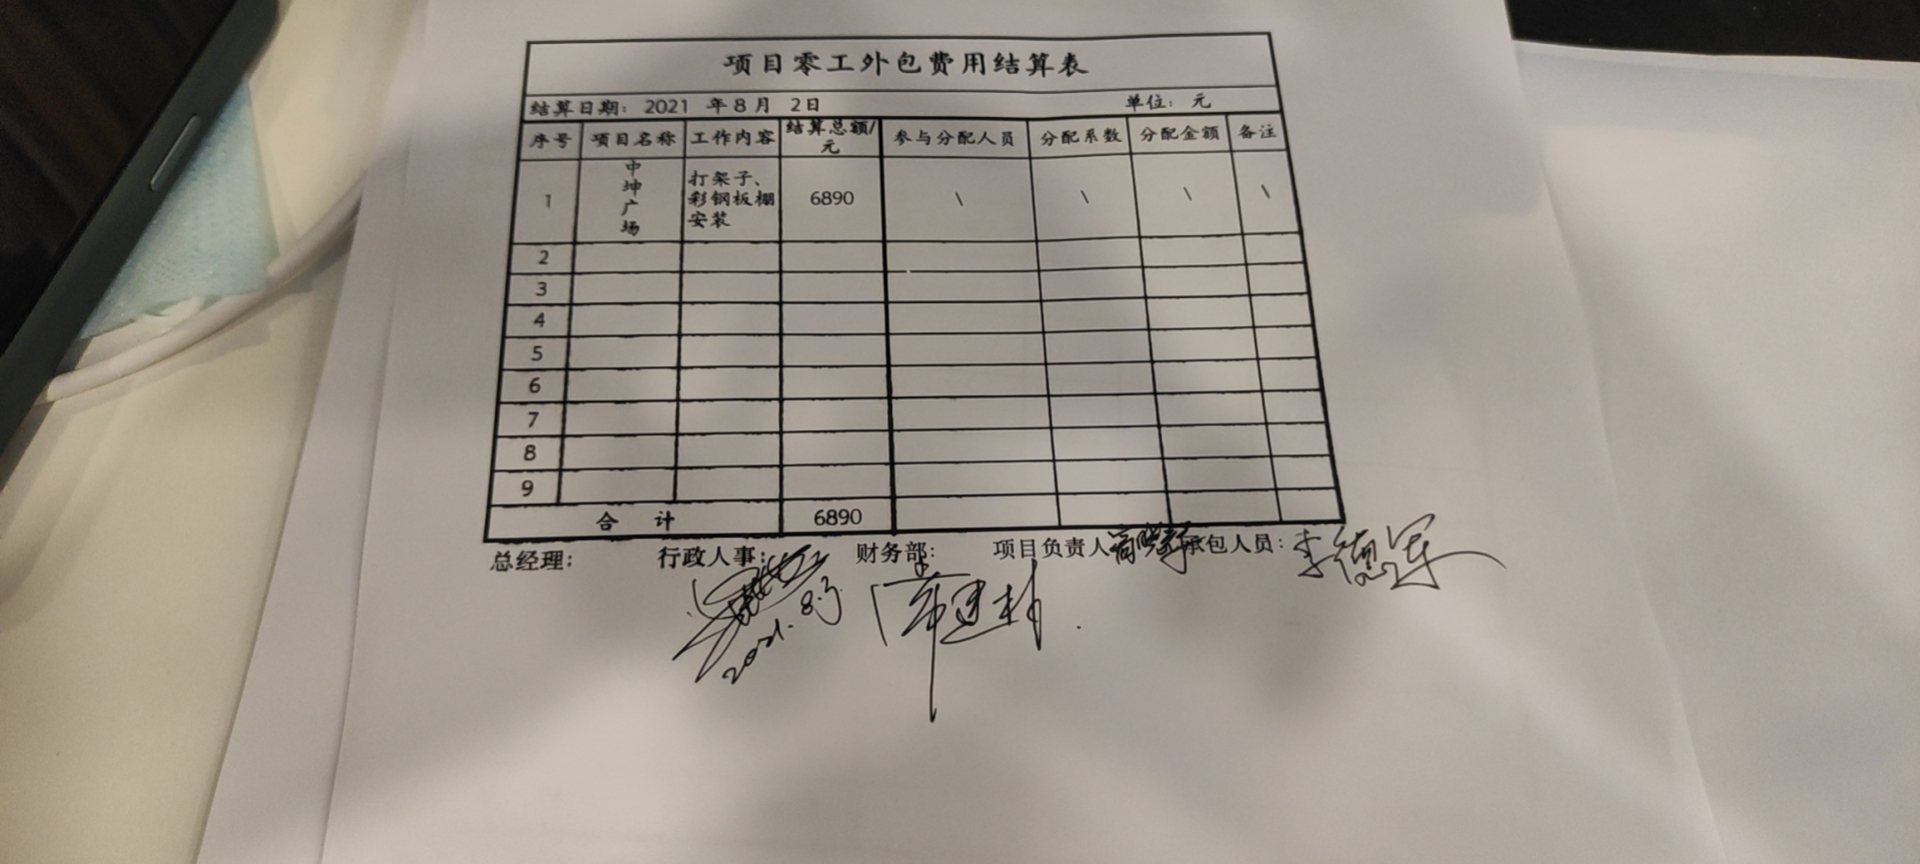 项目零工外包费用结算表
结算日期：2021 年 8 月 2日 单位：元
序号 项目名称 工作内容 结算总额/元 参与分配人员 分配系数 分配金额 备注
1 中坤广场 打架子、彩钢板棚安装 6890 \ \ \ \
2
3
4
5
6
7
8
9
合 计 6890
总经理： 行政人事： 财务部： 项目负责人 承包人员：李德军
2021.8.3